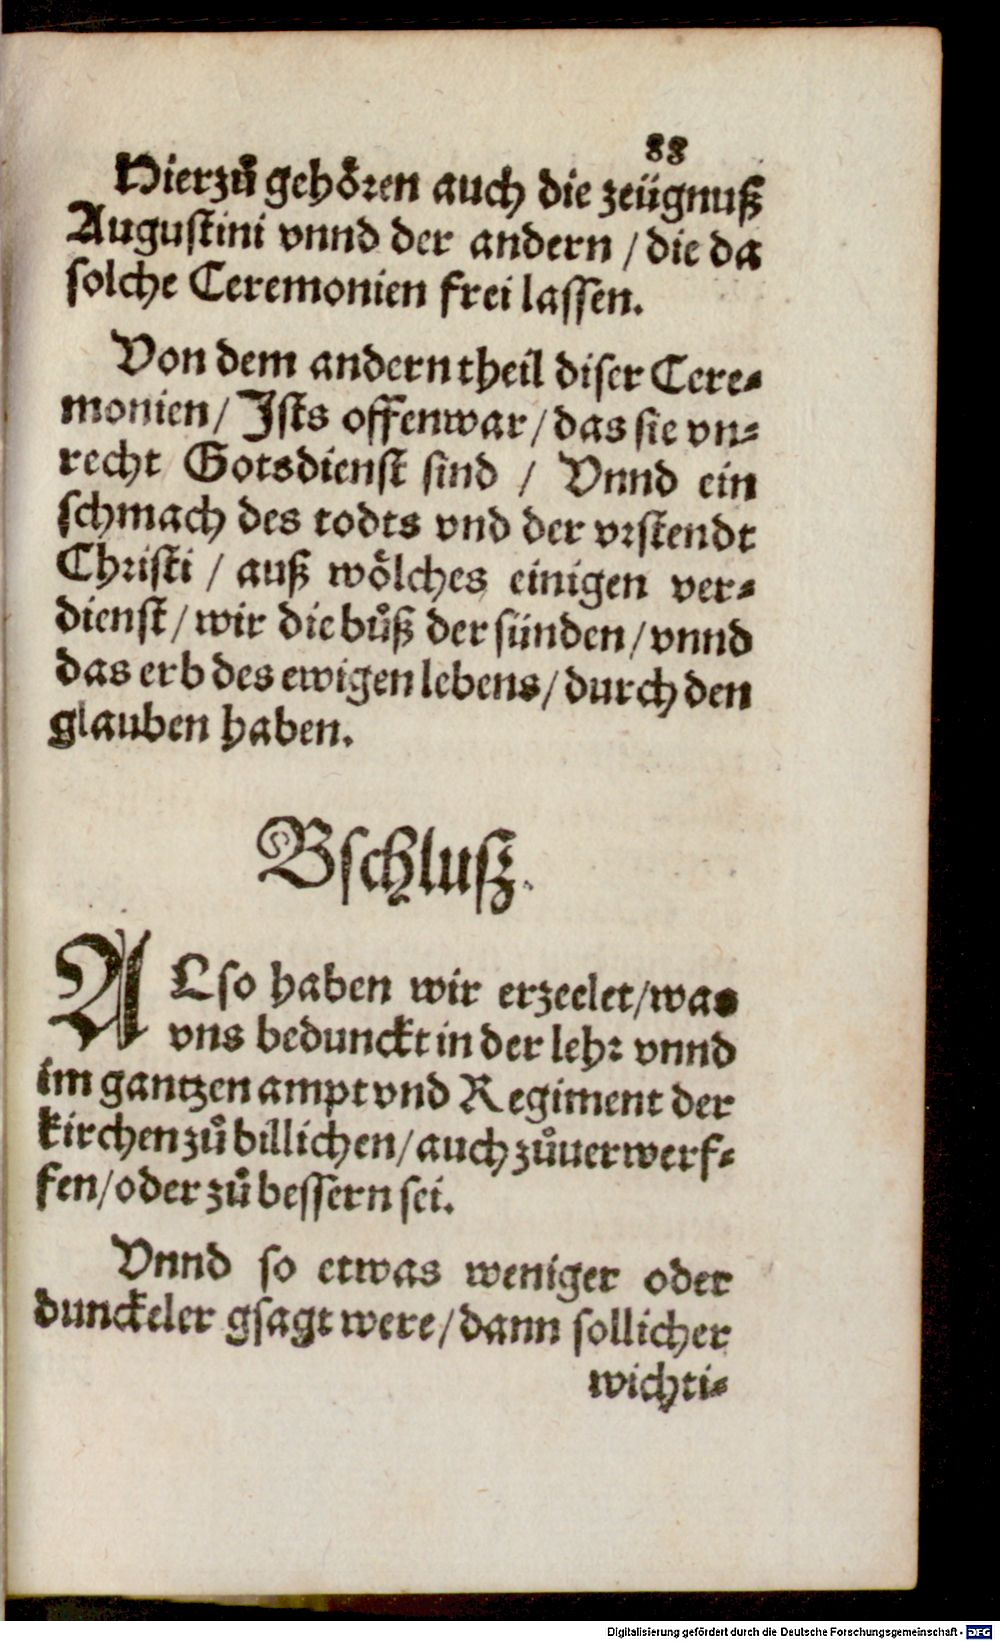 88
Hierzů gehoͤren auch die zeügnuß
Augustini vnnd der andern / die da
solche Ceremonien frei lassen.
Von dem andern theil diser Cere⸗
monien / Ists offenwar / das sie vn⸗
recht Gotsdienst sind / Vnnd ein
schmach des todts vnd der vrstendt
Christi / auß woͤlches einigen ver⸗
dienst / wir die bůß der sünden / vnnd
das erb des ewigen lebens / durch den
glauben haben.
Bschlusz.
ALso haben wir erzeelet / was
vns bedunckt in der lehr vnnd
im gantzen ampt vnd Regiment der
kirchen zů billichen / auch zůuerwerf⸗
fen / oder zů bessern sei.
Vnnd so etwas weniger oder
dunckeler gsagt were / dann sollicher
wichti⸗
Digitalisierung gefördert durch die Deutsche Forschungsgemeinschaft - DFG